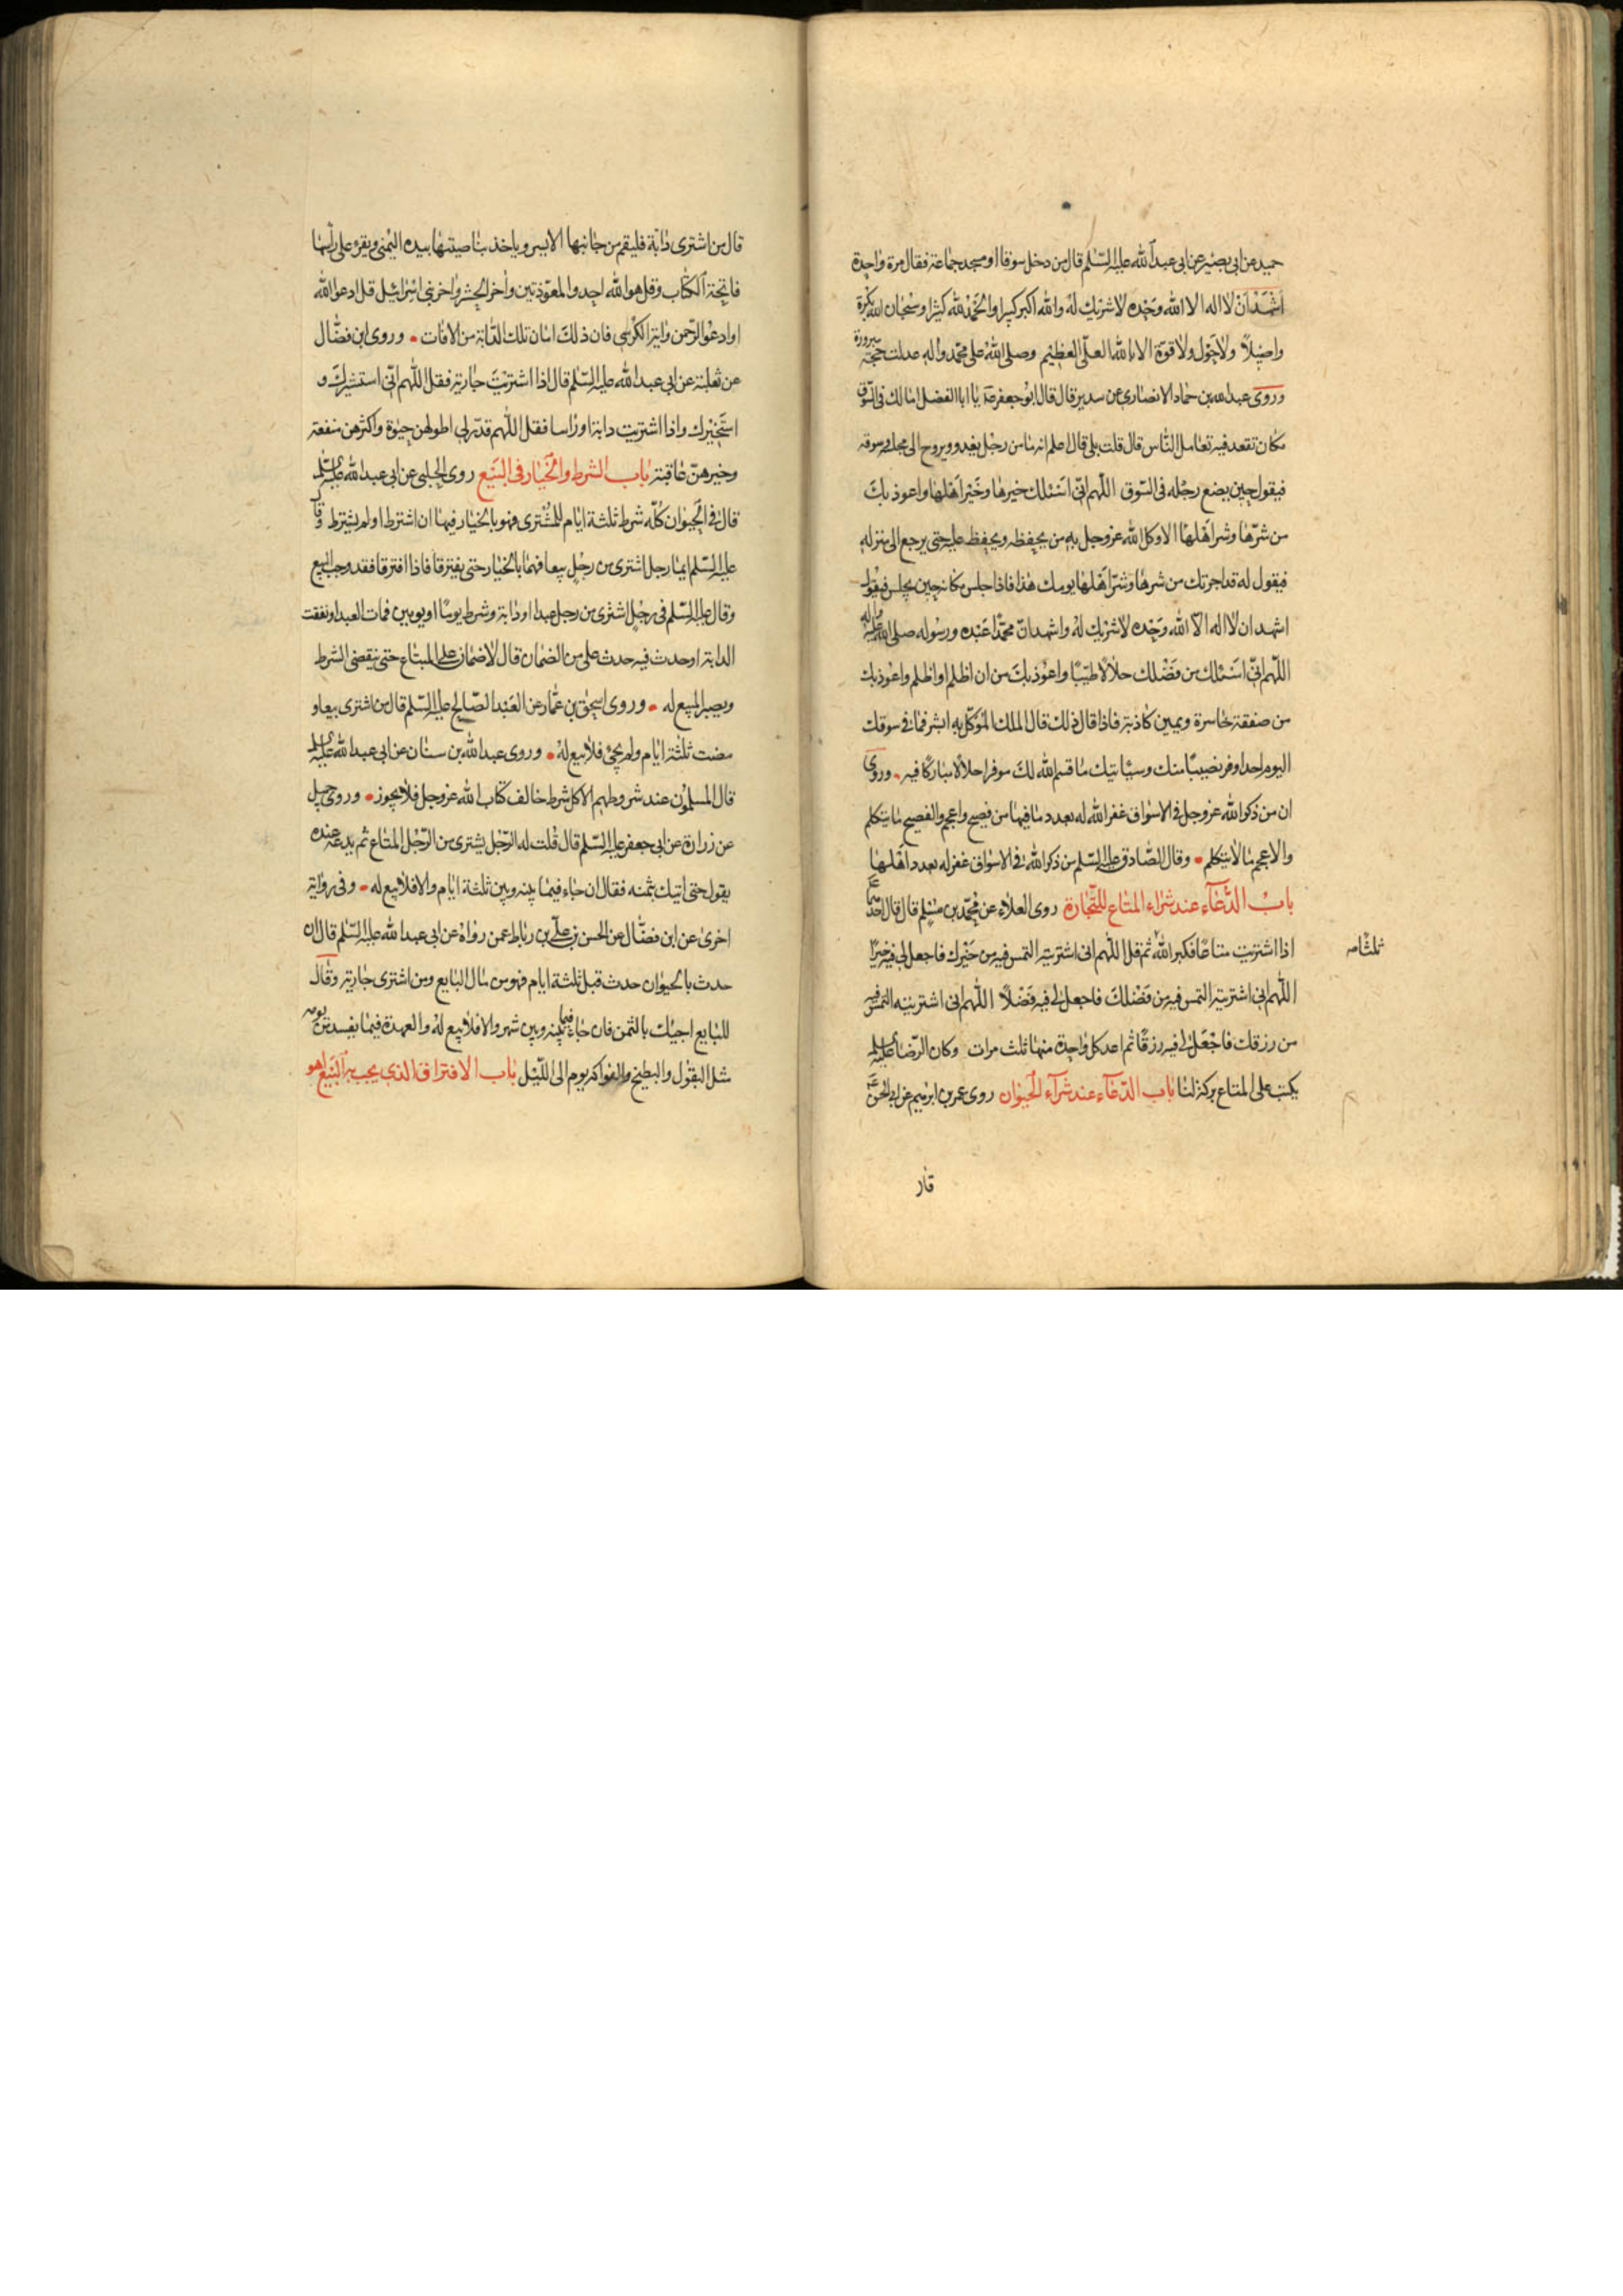 حميد عن ابى بصير عن ابى عبد الله عليه السّلم قال من دخل سوقا او مسجد جماعة فقال مرة واحدة
اشهد ان لا اله الا الله وحده لا شريك له والله اكبر كبيرا والحمد لله كثيرا وسبحان الله بكرة
واصيلا ولا حول ولا قوة الا بالله العلىّ العظيم وصلى الله على محمّد واله عدلت حجة مبرورة
وروى عبد الله بن حماد الانصارى عن سدير قال قال ابو جعفر عه يا ابا الفضل امالك فى السّوق
مكان تقعد فيه تعامل النّاس قال قلت بلى قال اعلم انه ما من رجل يغدو ويروح الى مجلسه وسوقه
فيقول حين يضع رجله فى السّوق اللّهم انّى اسئلك خيرها وخير اهلها واعوذ بك
من شرّها وشر اهلها الا وكل الله عز وجل به من يحفظه ويحفظ عليه حتى يرجع الى منزله
فيقول له قد اجرتك من شرها وشرّ اهلها يومك هذا فاذا جلس مكانه حين يجلس فيقول
اشهد ان لا اله الّا الله وحده لا شريك له واشهد انّ محمّدا عبده ورسوله صلى الله عليه واله
اللّهم انّى اسئلك من فضلك حلالا طيّبا واعوذ بك من ان اظلم او اظلم واعوذ بك
من صفقة خاسرة ويمين كاذبة فاذا قال ذلك قال الملك الموكّل به ابشر فما فى سوقك
اليوم احد اوفر نصيبا منك وسياتيك ما قسم الله لك موفرا حلالا مباركا فيه وروى
ان من ذكر الله عز وجل فى الاسواق غفر الله له بعدد ما فيها من فصيح واعجم والفصيح ما يتكلم
والاعجم ما لا يتكلم وقال الصّادق عليه السّلم من ذكر الله فى الاسواق غفر له بعدد اهلها
باب الدّعاء عند شراء المتاع للتّجارة روى العلاء عن محمّد بن مسلم قال قال احدهما
اذا اشتريت متاعا فكبر الله ثم قل اللّهم انى اشتريته التمس فيه من خيرك فاجعل لى فيه خيرا
ثلثا صه
اللّهم انى اشتريته التمس فيه من فضلك فاجعل لى فيه فضلا اللّهم انى اشتريته التمس فيه
من رزقك فاجعل لى فيه رزقا ثم اعد كل واحدة منها ثلث مرات وكان الرّضا عليه السلم
يكتب على المتاع بركة لنا باب الدّعاء عند شراء الحيوان روى عمر بن ابرهيم عن ابى الحسن
قال
قال من اشترى دابة فليقم من جانبها الايسر وياخذ بناصيتها بيده اليمنى ويقرء على راسها
فاتحة الكتاب وقل هو الله احد والمعوّذتين واخر الحشر واخر بنى اسرائيل قل ادعوا الله
او ادعوا الرّحمن واية الكرسى فان ذلك امان تلك الدّابة من الافات وروى ابن فضّال
عن ثعلبة عن ابى عبد الله عليه السّلم قال اذا اشتريت جارية فقل اللّهم انّى استشيرك و
استخيرك واذا اشتريت دابة او راسا فقل اللّهم قدّر لى اطولهن حيوة واكثرهن منفعة
وخيرهنّ عاقبة باب الشرط والخيار فى البيع روى الحلبى عن ابى عبد الله عليه السلم
قال فى الحيوان كلّه شرط ثلثة ايام للمشترى فهو بالخيار فيها ان اشترط او لم يشترط وقال
عليه السّلم ايما رجل اشترى من رجل بيعا فهما بالخيار حتى يفترقا فاذا افترقا فقد وجب البيع
وقال عليه السّلم فى رجل اشترى من رجل عبدا او دابة وشرط يوما او يومين فمات العبد او نفقت
الدابة او حدث فيه حدث على من الضمان قال لا ضمان على المبتاع حتى ينقضى الشرط
ويصير المبيع له وروى اسحق بن عمّار عن العبد الصّالح عليه السّلم قال من اشترى بيعا و
مضت ثلثة ايام ولم يجئ فلا بيع له وروى عبد الله بن سنان عن ابى عبد الله عليه السلم
قال المسلمون عند شروطهم الا كل شرط خالف كتاب الله عز وجل فلا يجوز وروى جميل
عن زرارة عن ابى جعفر عليه السّلم قال قلت له الرّجل يشترى من الرّجل المتاع ثم يدعه عنده
يقول حتى اتيك بثمنه فقال ان جاء فيما بينه وبين ثلثة ايام والا فلا بيع له وفى رواية
اخرى عن ابن فضّال عن الحسن بن على بن رباط عمن رواه عن ابى عبد الله عليه السّلم قال ان
حدث بالحيوان حدث قبل ثلثة ايام فهو من مال البايع ومن اشترى جارية وقال
للبايع اجيئك بالثمن فان جاء فيما بينه وبين شهر والا فلا بيع له والعهدة فيما يفسد من يومه
مثل البقول والبطيخ والفواكه يوم الى اللّيل باب الافتراق الذى يجب به البيع اهو